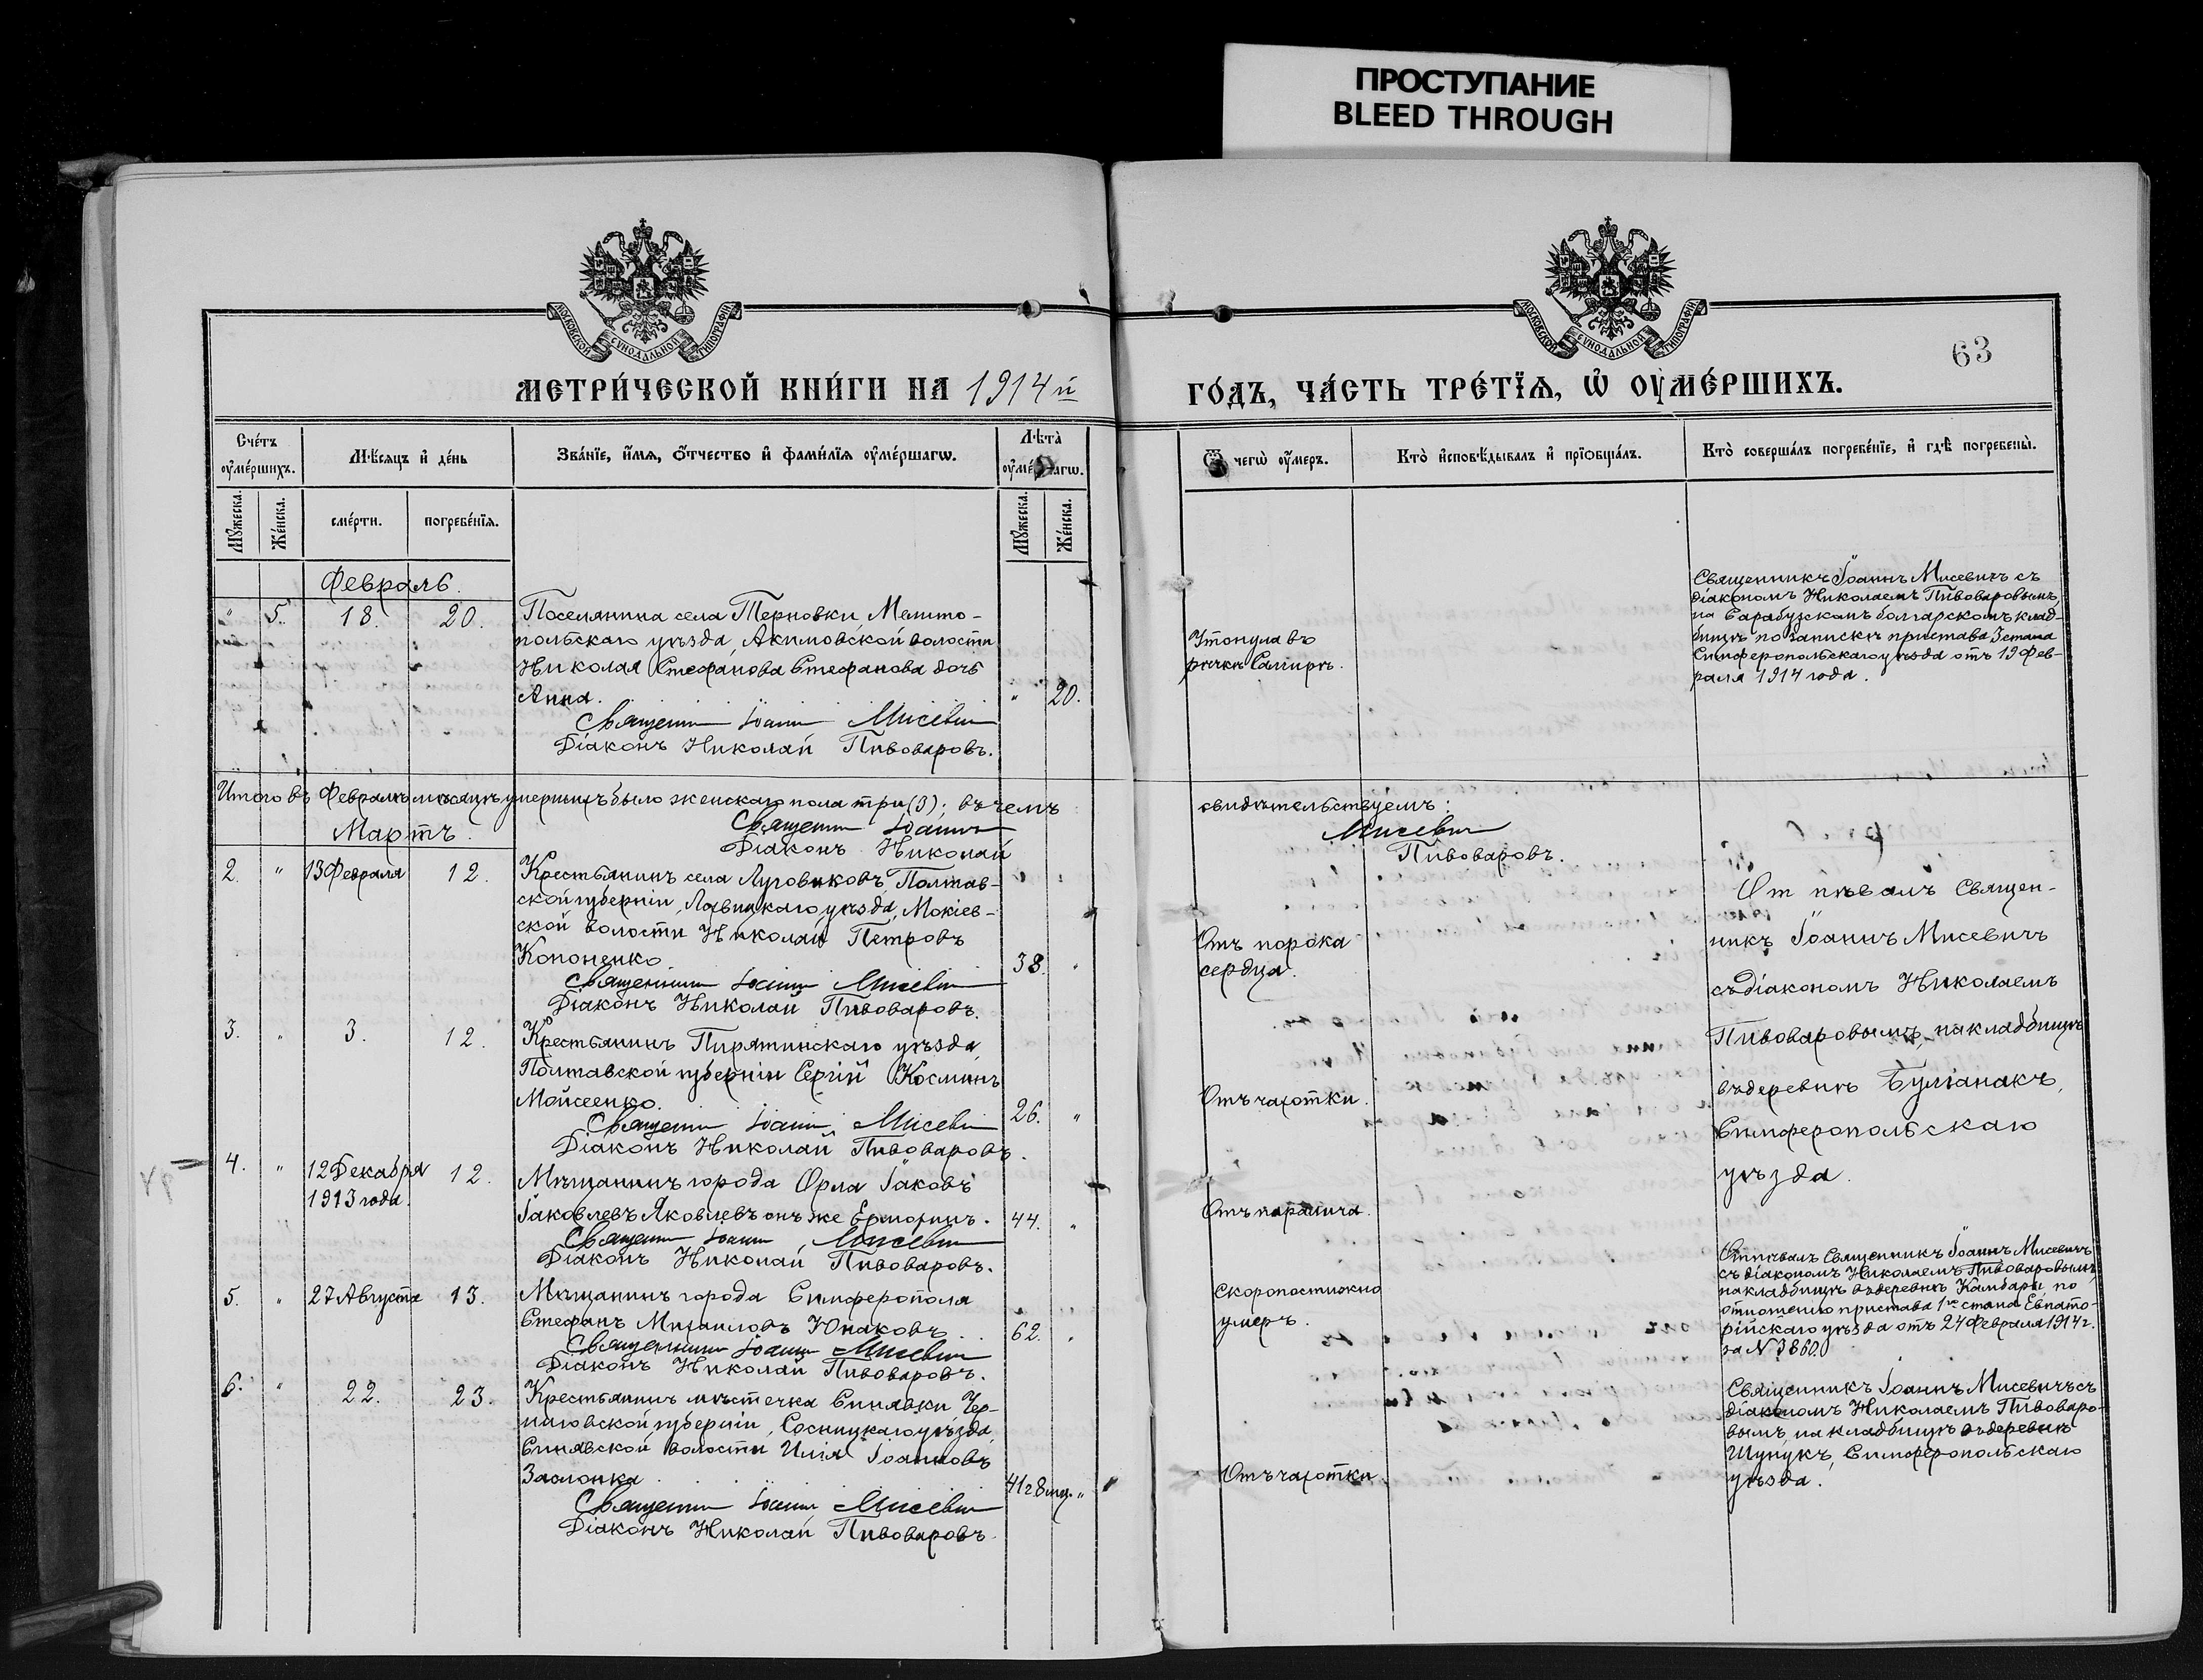 ПРОСТУПАНИЕ
BLEED THROUGH
МОСКОВСКОЙ СѴНОДАЛЬНОЙ ТИПОГРАФІИ
МОСКОВСКОЙ СѴНОДАЛЬНОЙ ТИПОГРАФІИ
63
МЕТРИ́ЧЕСКОЙ КНИ́ГИ НА 1914 й
ГО́ДЪ, ЧА́СТЬ ТРЕ́ТЇѦ, Ѡ҆ ОУМЕ́РШИХЪ.
Сче́тъ оу҆ме́ршихъ.
Мѣ́сяцъ и҆ де́нь
Зва́нїе, и҆́мѧ, ѻ҆́тчество и҆ фами́лїѧ оу҆ме́ршагѡ.
Лѣ́та оу҆ме́ршагѡ.
Ѿ чегѡ̀ оу҆́меръ.
Кто̀ и҆сповѣ́дывалъ и҆ прїѻбща́лъ.
Кто̀ соверша́лъ погребе́нїе, и҆ гдѣ̀ погребены̀.
Мꙋ́жеска.
Же́нска.
сме́рти.
погребе́нїѧ.
Мꙋ́жеска.
Же́нска.
Февраль.
" 5. 18. 20.
Поселянина села Терновки, Мелито-
польскаго уѣзда, Акимовской волости
Николая Стефанова Стефанова дочь
Анна. " 20.
Священникъ Іоаннъ Мисевичъ
Діаконъ Николай Пивоваровъ.
Утонула въ
рѣчкѣ Салгирѣ.
Священникъ Іоаннъ Мисевичъ съ
діакономъ Николаемъ Пивоваровымъ
на Сарабузскомъ болгарскомъ клад-
бищѣ по запискѣ пристава 3 стана
Симферопольскаго уѣзда отъ 19 Фев-
раля 1914 года.
Итого въ Февралѣ мѣсяцѣ умершихъ было женскаго пола три (3); въ чемъ
свидѣтельствуемъ:
Священникъ Іоаннъ Мисевичъ
Діаконъ Николай Пивоваровъ.
Мартъ.
2. " 13 Февраля 12.
Крестьянинъ села Луговиковъ, Полтав-
ской губерніи, Лохвицкаго уѣзда, Мокіев-
ской волости Николай Петровъ
Кононенко 38. "
Священникъ Іоаннъ Мисевичъ
Діаконъ Николай Пивоваровъ.
Отъ порока
сердца.
Отпѣвалъ Священ-
никъ Іоаннъ Мисевичъ
съ діакономъ Николаемъ
Пивоваровымъ, на кладбищѣ
въ деревнѣ Булганакъ,
Симферопольскаго
уѣзда.
3. " 3. 12.
Крестьянинъ Пирятинскаго уѣзда,
Полтавской губерніи Сергій Косминъ
Мойсеенко. 26. "
Священникъ Іоаннъ Мисевичъ
Діаконъ Николай Пивоваровъ.
Отъ чахотки.
4. " 12 Декабря 12.
1913 года.
Мѣщанинъ города Орла Іаковъ
Іаковлевъ Яковлевъ онъ же Ермохинъ. 44. "
Священникъ Іоаннъ Мисевичъ
Діаконъ Николай Пивоваровъ.
Отъ паралича.
5. " 27 Августа 13.
Мѣщанинъ города Симферополя
Стефанъ Михаиловъ Юнаковъ 62. "
Священникъ Іоаннъ Мисевичъ
Діаконъ Николай Пивоваровъ.
Скоропостижно
умеръ.
Отпѣвалъ Священникъ Іоаннъ Мисевичъ
съ діакономъ Николаемъ Пивоваровымъ,
на кладбищѣ въ деревнѣ Камбары, по
отношенію пристава 1го стана Евпато-
рійскаго уѣзда отъ 24 Февраля 1914 г.
за N 3860.
6. " 22. 23.
Крестьянинъ мѣстечка Синявки, Чер-
ниговской губерніи, Сосницкаго уѣзда,
Синявской волости Илія Іоанновъ
Заслонка 41 г 8 мц. "
Священникъ Іоаннъ Мисевичъ
Діаконъ Николай Пивоваровъ.
Отъ чахотки
Священникъ Іоаннъ Мисевичъ съ
діакономъ Николаемъ Пивоваро-
вымъ, на кладбищѣ въ деревнѣ
Шунукъ, Симферопольскаго
уѣзда.